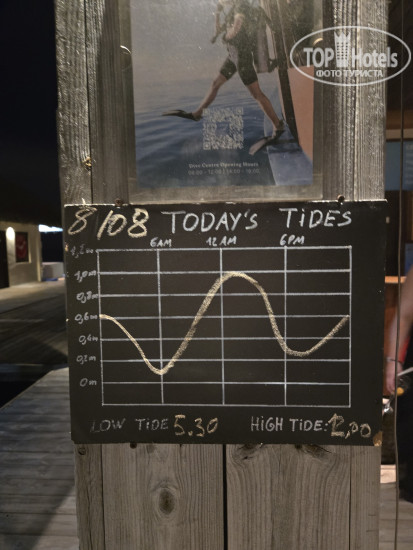 TOPHotels
ФОТО ТУРИСТА
Dive Centre Opening Hours
8/08 TODAY'S TiDES
6AM 12AM 6PM
1,2m
1,0m
0,8m
0,6m
0,4m
0,2m
0m
LOW TiDE 5.30 HiGH TiDE: 12,00